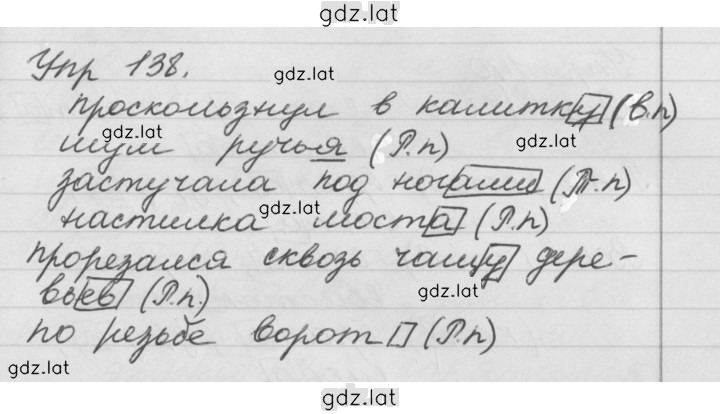 gdz.lat
Упр 138.
gdz.lat
проскользнул в калитку (В.п)
gdz.lat
gdz.lat
шум ручья (Р.п)
застучала под ногами (Т.п)
gdz.lat
настилка моста (Р.п)
прорезался сквозь чащу дере-
gdz.lat
вьев (Р.п.)
по резьбе ворот (Р.п)
gdz.lat
gdz.lat